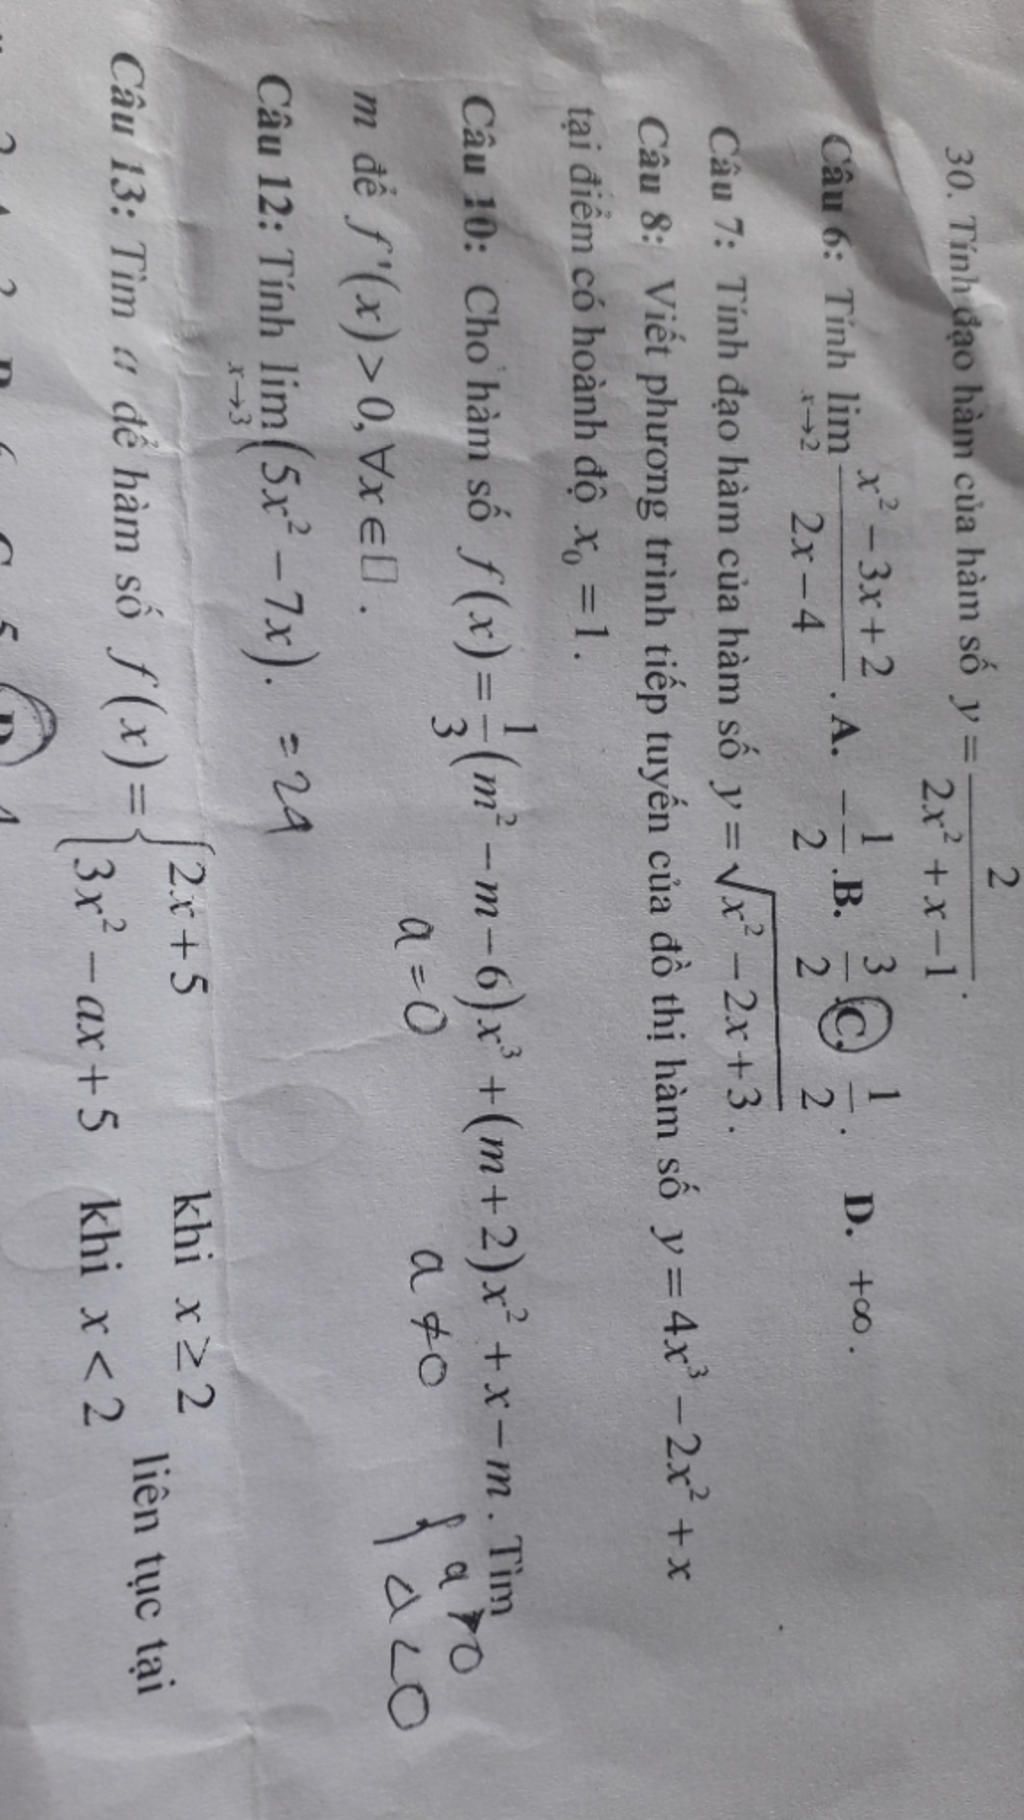 30. Tính đạo hàm của hàm số y = 2/(2x² + x − 1).
Câu 6: Tính lim x→2 (x² − 3x + 2)/(2x − 4). A. −1/2. B. 3/2. C. 1/2. D. +∞.
Câu 7: Tính đạo hàm của hàm số y = √(x² − 2x + 3).
Câu 8: Viết phương trình tiếp tuyến của đồ thị hàm số y = 4x³ − 2x² + x
tại điểm có hoành độ x₀ = 1.
Câu 10: Cho hàm số f(x) = 1/3(m² − m − 6)x³ + (m + 2)x² + x − m. Tìm
m để f'(x) > 0, ∀x ∈ □.
a = 0 a ≠ 0 { a > 0
Δ < 0
Câu 12: Tính lim x→3 (5x² − 7x). = 24
Câu 13: Tìm a để hàm số f(x) = { 2x + 5 khi x ≥ 2
3x² − ax + 5 khi x < 2 liên tục tại